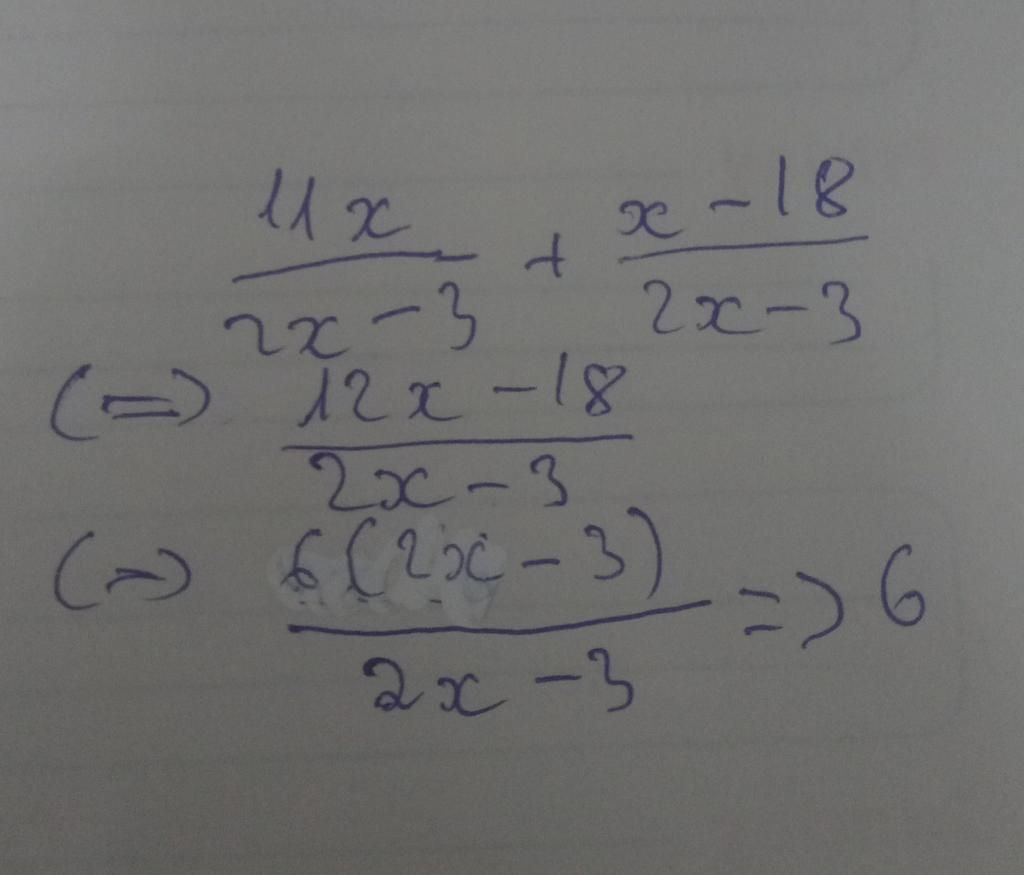 11x/2x-3 + x-18/2x-3
(=) 12x-18/2x-3
(=) 6(2x-3)/2x-3 => 6